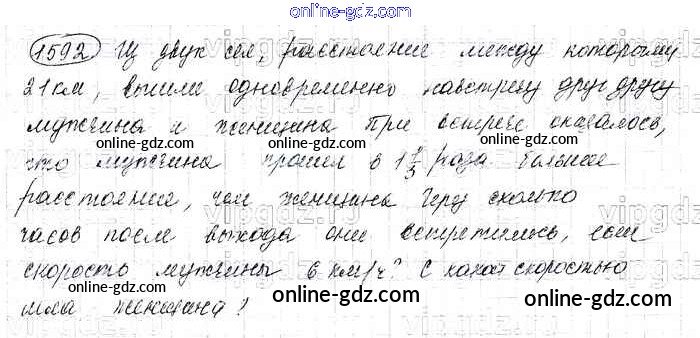 online-gdz.com
1592 Из двух сел, расстояние между которыми
21 км, вышли одновременно навстречу друг другу
мужчина и женщина При встрече оказалось,
что мужчина прошел в 1 1/3 раза больше
расстояние, чем женщина Через сколько
часов после выхода они встретились, если
скорость мужчины 6 км/ч? С какой скоростью
шла женщина?
online-gdz.com
online-gdz.com
online-gdz.com